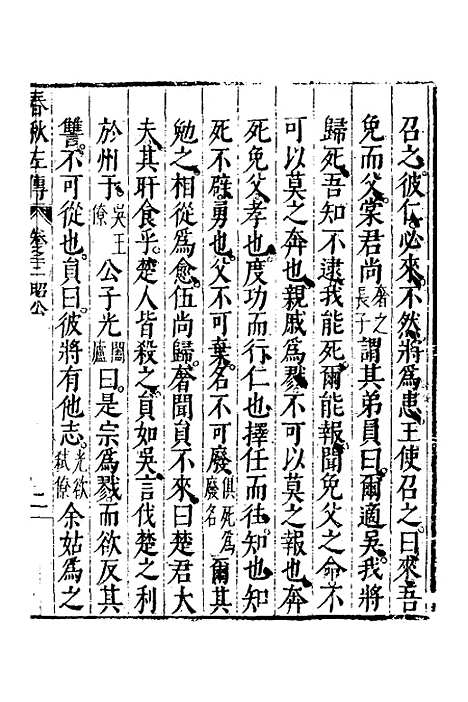 召之彼仁必來不然將爲患王使召之曰來吾
免而父棠君尚奢之長子謂其弟員曰爾適吳我將
歸死吾知不逮我能死爾能報聞免父之命不
可以莫之奔也親戚爲戮不可以莫之報也奔
死免父孝也度功而行仁也擇任而往知也知
死不辟勇也父不可棄名不可廢俱死爲廢名爾其
勉之相從爲愈伍尚歸奢聞員不來曰楚君大
夫其旰食乎楚人皆殺之員如吳言伐楚之利
於州于吳王僚公子光闔廬曰是宗爲戮而欲反其
讐不可從也員曰彼將有他志光欲弒僚余姑爲之
春秋左傳 昭公 二